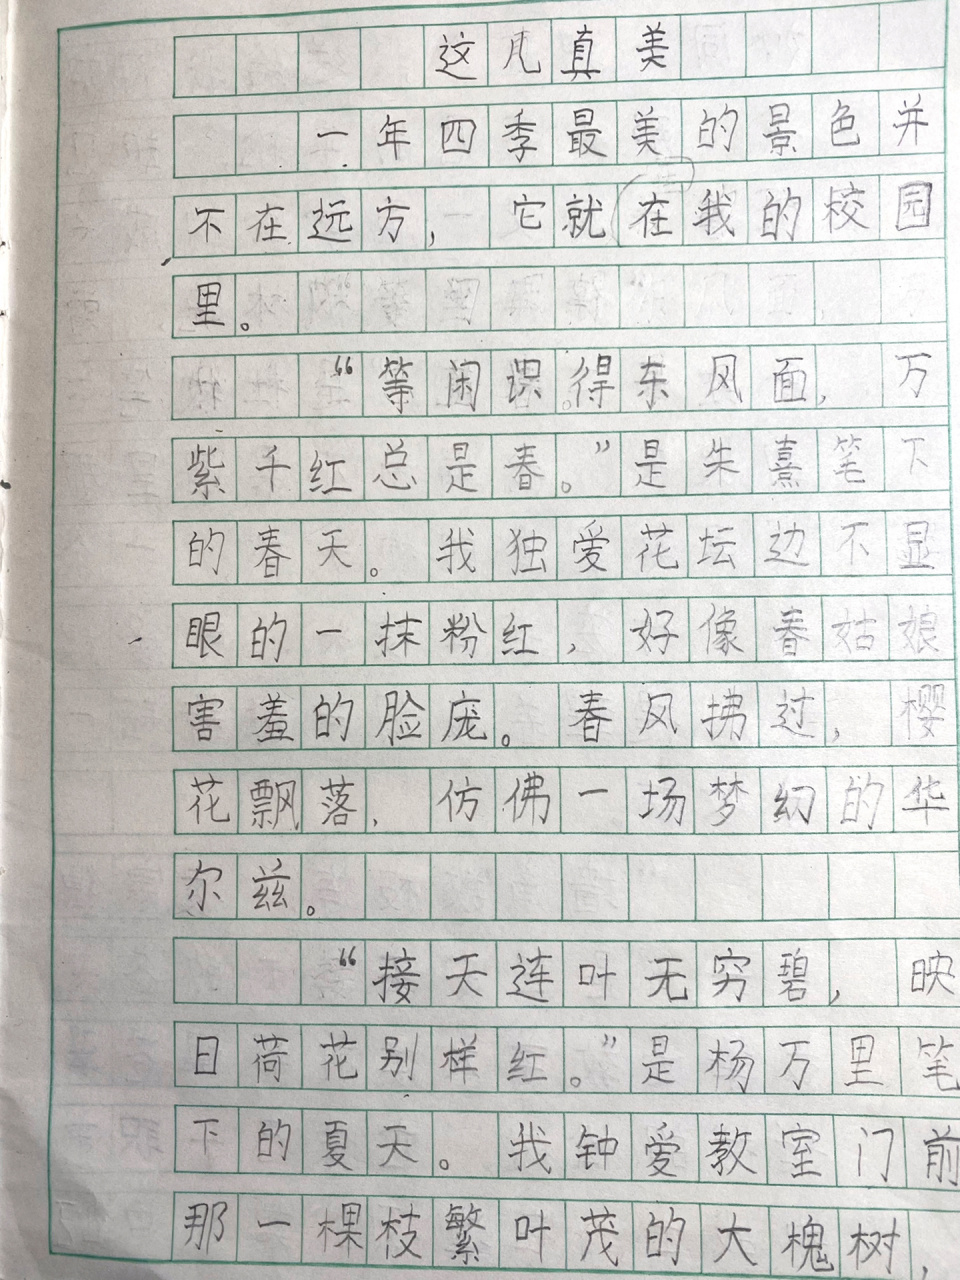 这儿真美
一年四季最美的景色并
不在远方，它就在我的校园
里。
“等闲识得东风面，万
紫千红总是春。”是朱熹笔下
的春天。我独爱花坛边不显
眼的一抹粉红，好像春姑娘
害羞的脸庞。春风拂过，樱
花飘落，仿佛一场梦幻的华
尔兹。
“接天连叶无穷碧，映
日荷花别样红。”是杨万里笔
下的夏天。我钟爱教室门前
那一棵枝繁叶茂的大槐树，